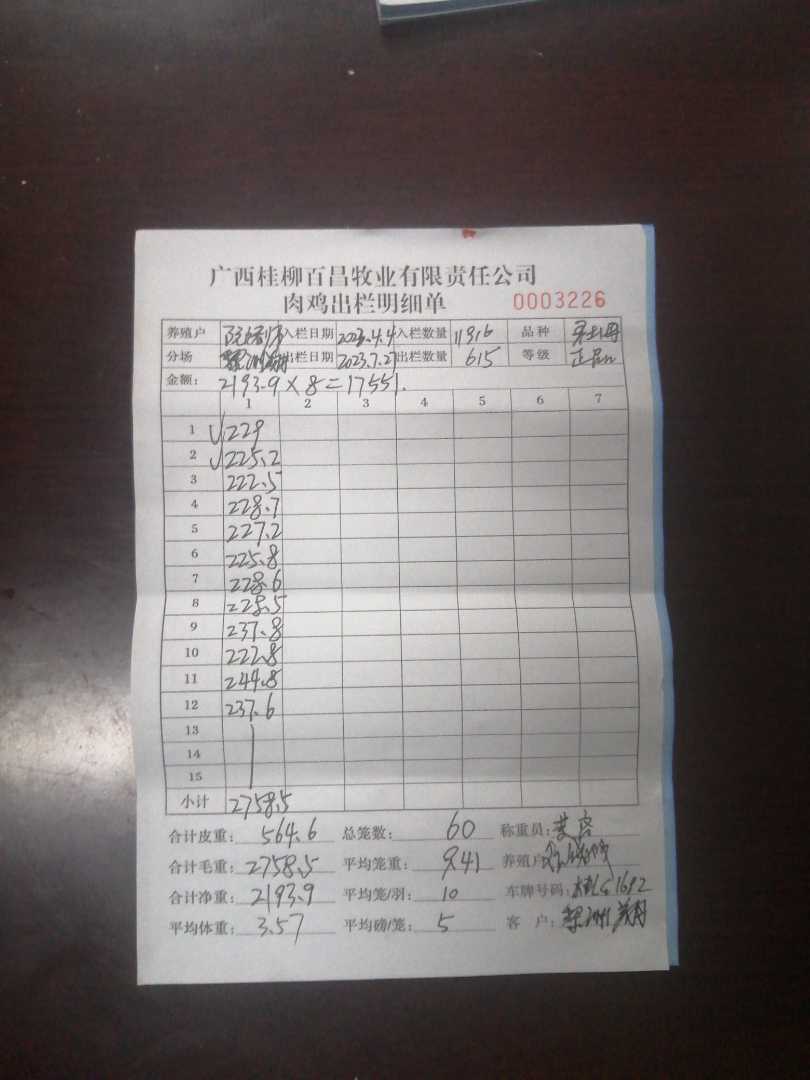 广西桂柳百昌牧业有限责任公司
肉鸡出栏明细单 0003226
养殖户 入栏日期 2023.4.4 入栏数量 11316 品种
分场 出栏日期 2023.7.27 出栏数量 615 等级 正品
金额: 2193.9×8=17551.
1 2 3 4 5 6 7
1 √229
2 √225.2
3 222.5
4 228.7
5 227.2
6 225.8
7 228.6
8 228.5
9 237.8
10 222.8
11 244.8
12 237.6
13
14
15
小计 2758.5
合计皮重: 564.6 总笼数: 60 称重员:
合计毛重: 2758.5 平均笼重: 9.41 养殖户:
合计净重: 2193.9 平均笼/羽: 10 车牌号码:
平均体重: 3.57 平均磅/笼: 5 客 户: